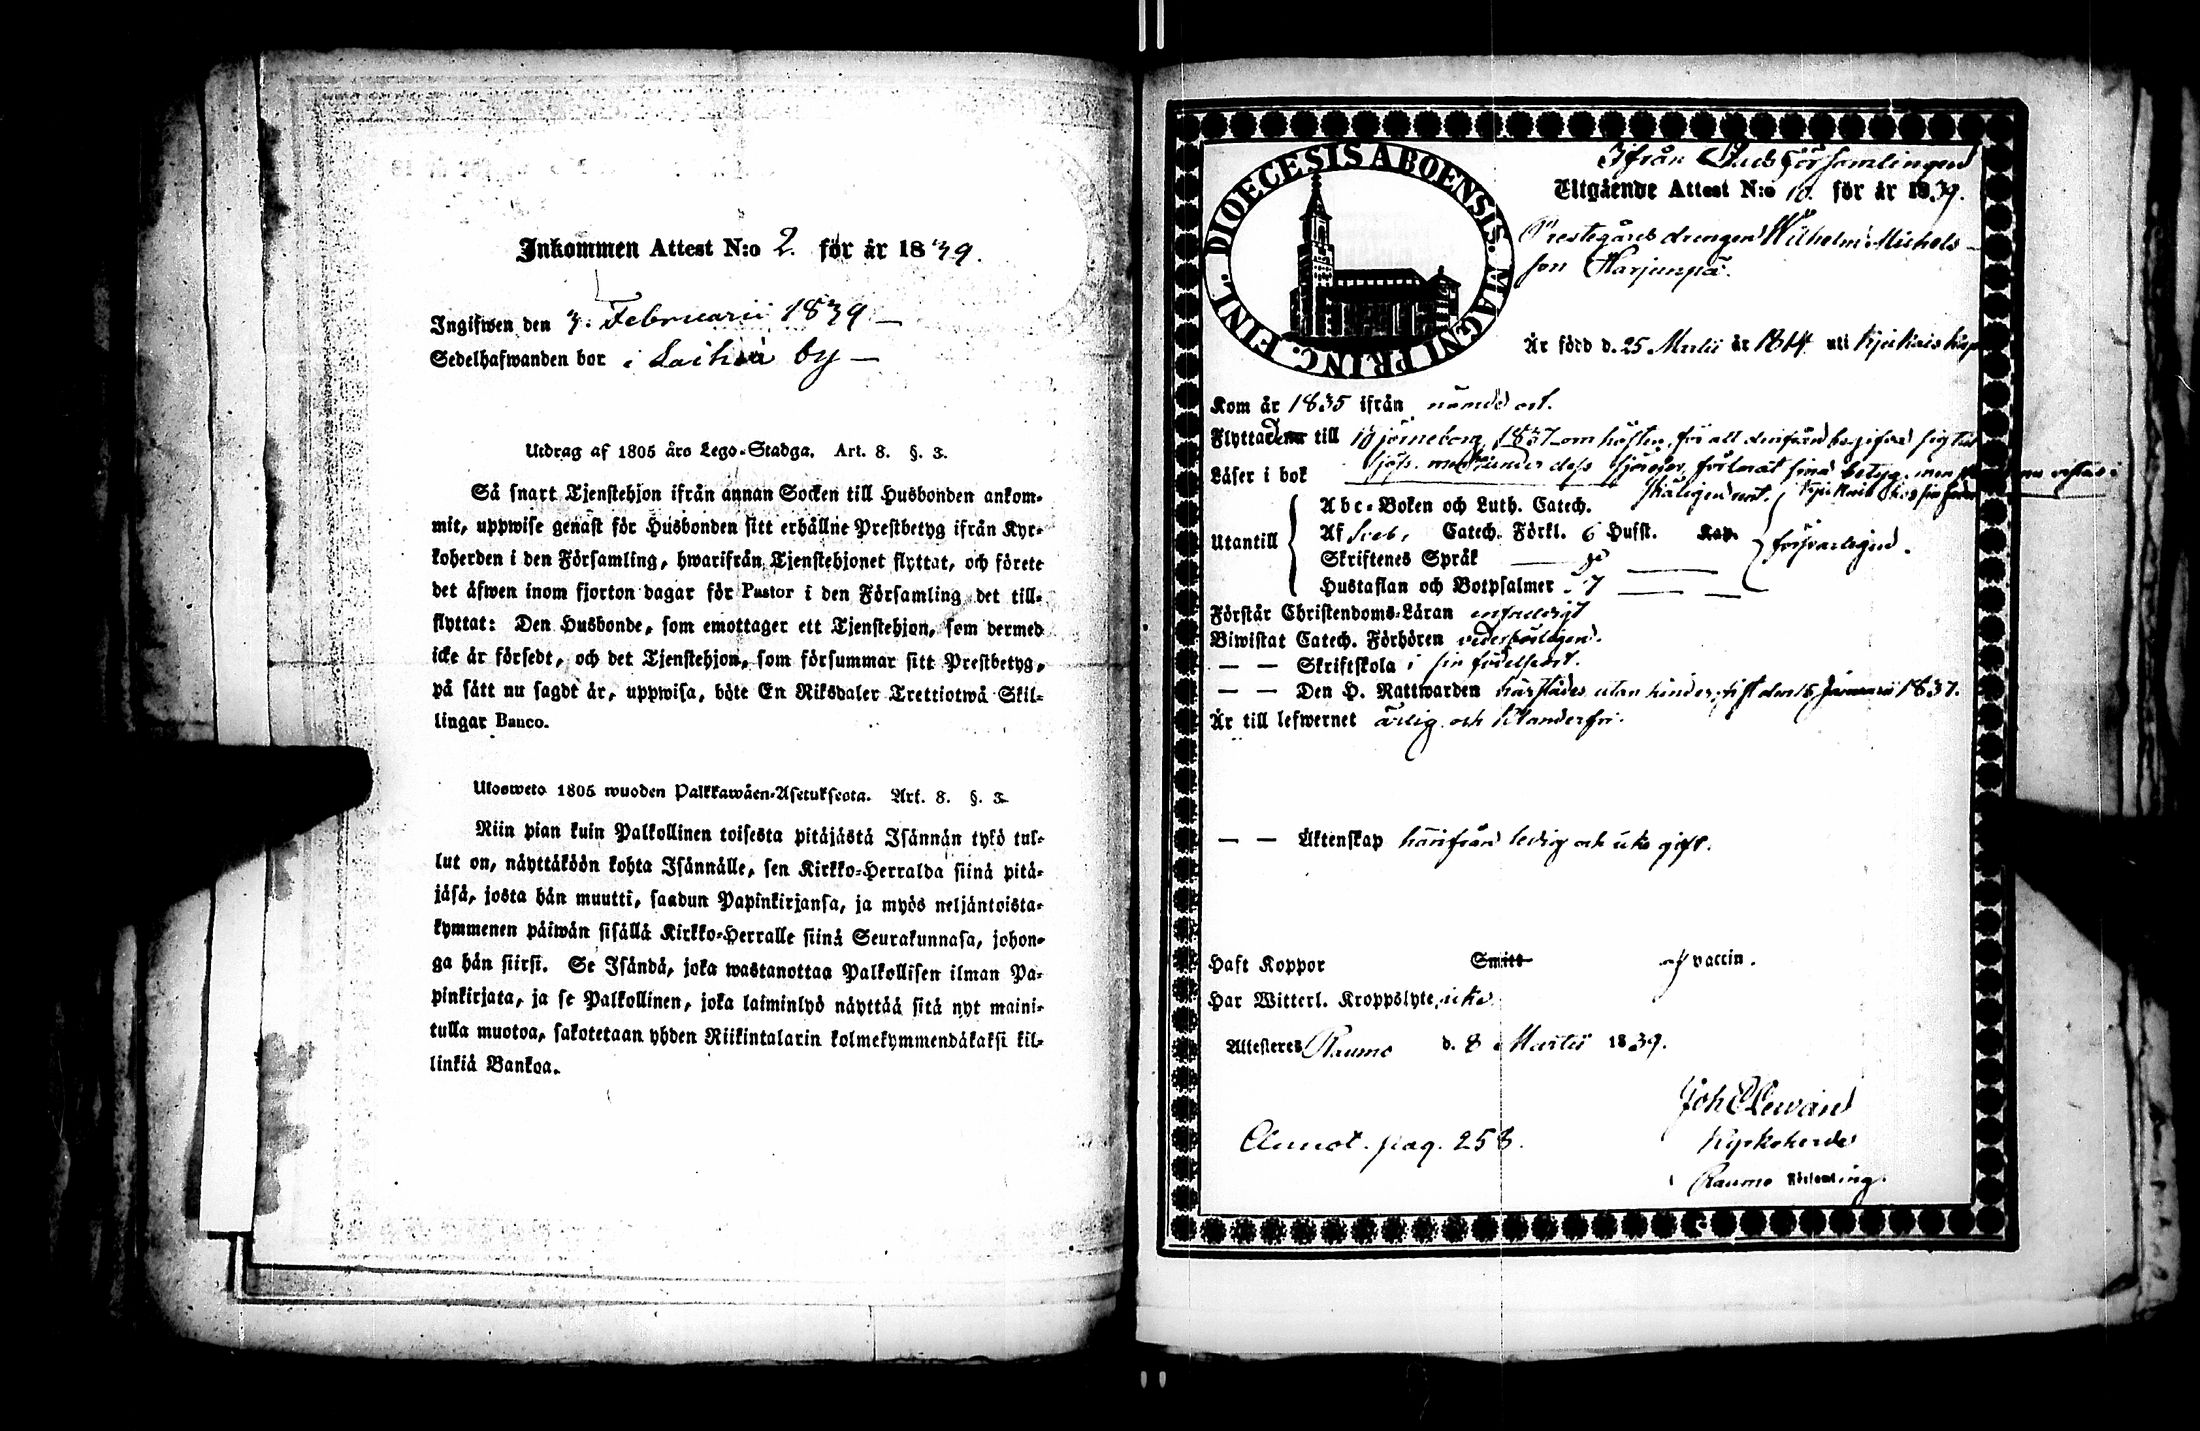 Inkommen Attest N:o 2. för år 1839.
Ingifwen den 3. Februarii 1839
Sedelhafwanden bor i Laihia by
Utdrag af 1805 års Lego-Stadga. Art. 8. §. 3.
Så snart Tjenstehjon ifrån annan Socken till Husbonden ankom-
mit, uppwise genast för Husbonden sitt erhållne Prestbetyg ifrån Kyr-
koherden i den Församling, hwarifrån Tjenstehjonet flyttat, och förete
det äfwen inom fjorton dagar för Pastor i den Församling det till-
flyttat: Den Husbonde, som emottager ett Tjenstehjon, som dermed
icke är försedt, och det Tjenstehjon, som försummar sitt Prestbetyg,
på sätt nu sagdt är, uppwisa, böte En Riksdaler Trettiotwå Skil-
lingar Banco.
Ulosweto 1805 wuoden Palkkawäen-Asetuksesta. Art. 8. §. 3.
Niin pian kuin Palkollinen toisesta pitäjästä Isännän tykö tul-
lut on, näyttäköön kohta Isännälle, sen Kirkko-Herralda siinä pitä-
jäsä, josta hän muutti, saadun Papinkirjansa, ja myös neljäntoista-
kymmenen päiwän sisällä Kirkko-Herralle siinä Seurakunnasa, johon-
ga hän siirsi. Se Isändä, joka wastanottaa Palkollisen ilman Pa-
pinkirjata, ja se Palkollinen, joka laiminlyö näyttää sitä nyt maini-
tulla muotoa, sakotetaan yhden Riikintalarin kolmekymmendäkaksi kil-
linkiä Bankoa.
DIOECESIS ABOENSIS. MAGNI PRINC. FINL.
Ifrån Församlingen
Utgående Attest N:o 10. för år 1839.
Prestegårds drengen Wilhelm Michels-
son Harjunpä.
Är född d. 25 Martii år 1814 uti Kjukais kap
Kom år 1835 ifrån nämnd ort.
Flyttade till Björneborg 1837 om hösten, för att derifrån begifva sig till
Läser i bok Sjöss. men under dess förlorat sina betyg, men
skäligen
Abc-Boken och Luth. Catech.
Utantill Af Sveb. Catech. Förkl. 6 Hufst. Kap. försvarligen.
Skriftenes Språk
Hustaflan och Botpsalmer 7
Förstår Christendoms-Läran enfaldigt
Biwistat Catech. Förhören vederbörligen.
— — Skriftskola i sin födelseort.
— — Den H. Nattwarden härstädes utan hinder, sist den 15 Januarii 1837.
Är till lefwernet ärlig och klanderfri.
— — Äktenskap härifrån ledig och icke gift.
Haft Koppor Smitt af vaccin.
Har Witterl. Kroppslyte icke
Attesteres Raumo d. 8 Martii 1839.
Joh Lewän
Kyrkoherde
Annot. pag. 258.
i Raumo Församling.